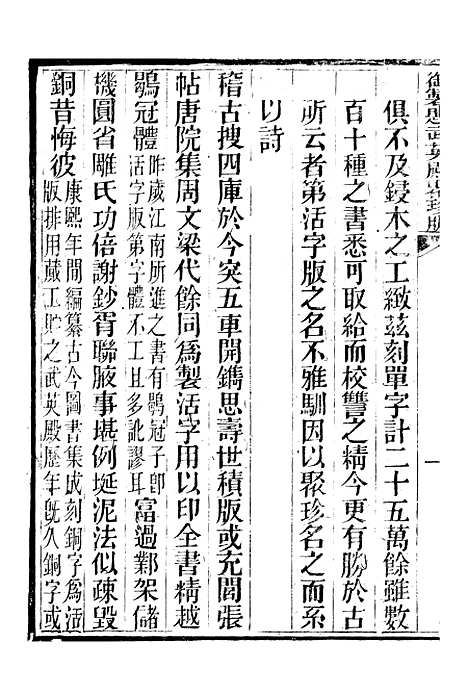 御製題武英殿聚珍版
俱不及鋟木之工緻茲刻單字計二十五萬餘雖數
百十種之書悉可取給而校讐之精今更有勝於古
所云者第活字版之名不雅馴因以聚珍名之而系
以詩
稽古搜四庫於今突五車開鐫思壽世積版或充閭張
帖唐院集周文梁代餘同爲製活字用以印全書精越
鶡冠體昨歲江南所進之書有鶡冠子卽活字版第字體不工且多訛謬耳富過鄴架儲
機圓省雕氏功倍謝鈔胥聯腋事堪例埏泥法似疎毀
銅昔悔彼康熙年間編纂古今圖書集成刻銅字爲活版排用蕆工貯之武英殿歷年旣久銅字或
一